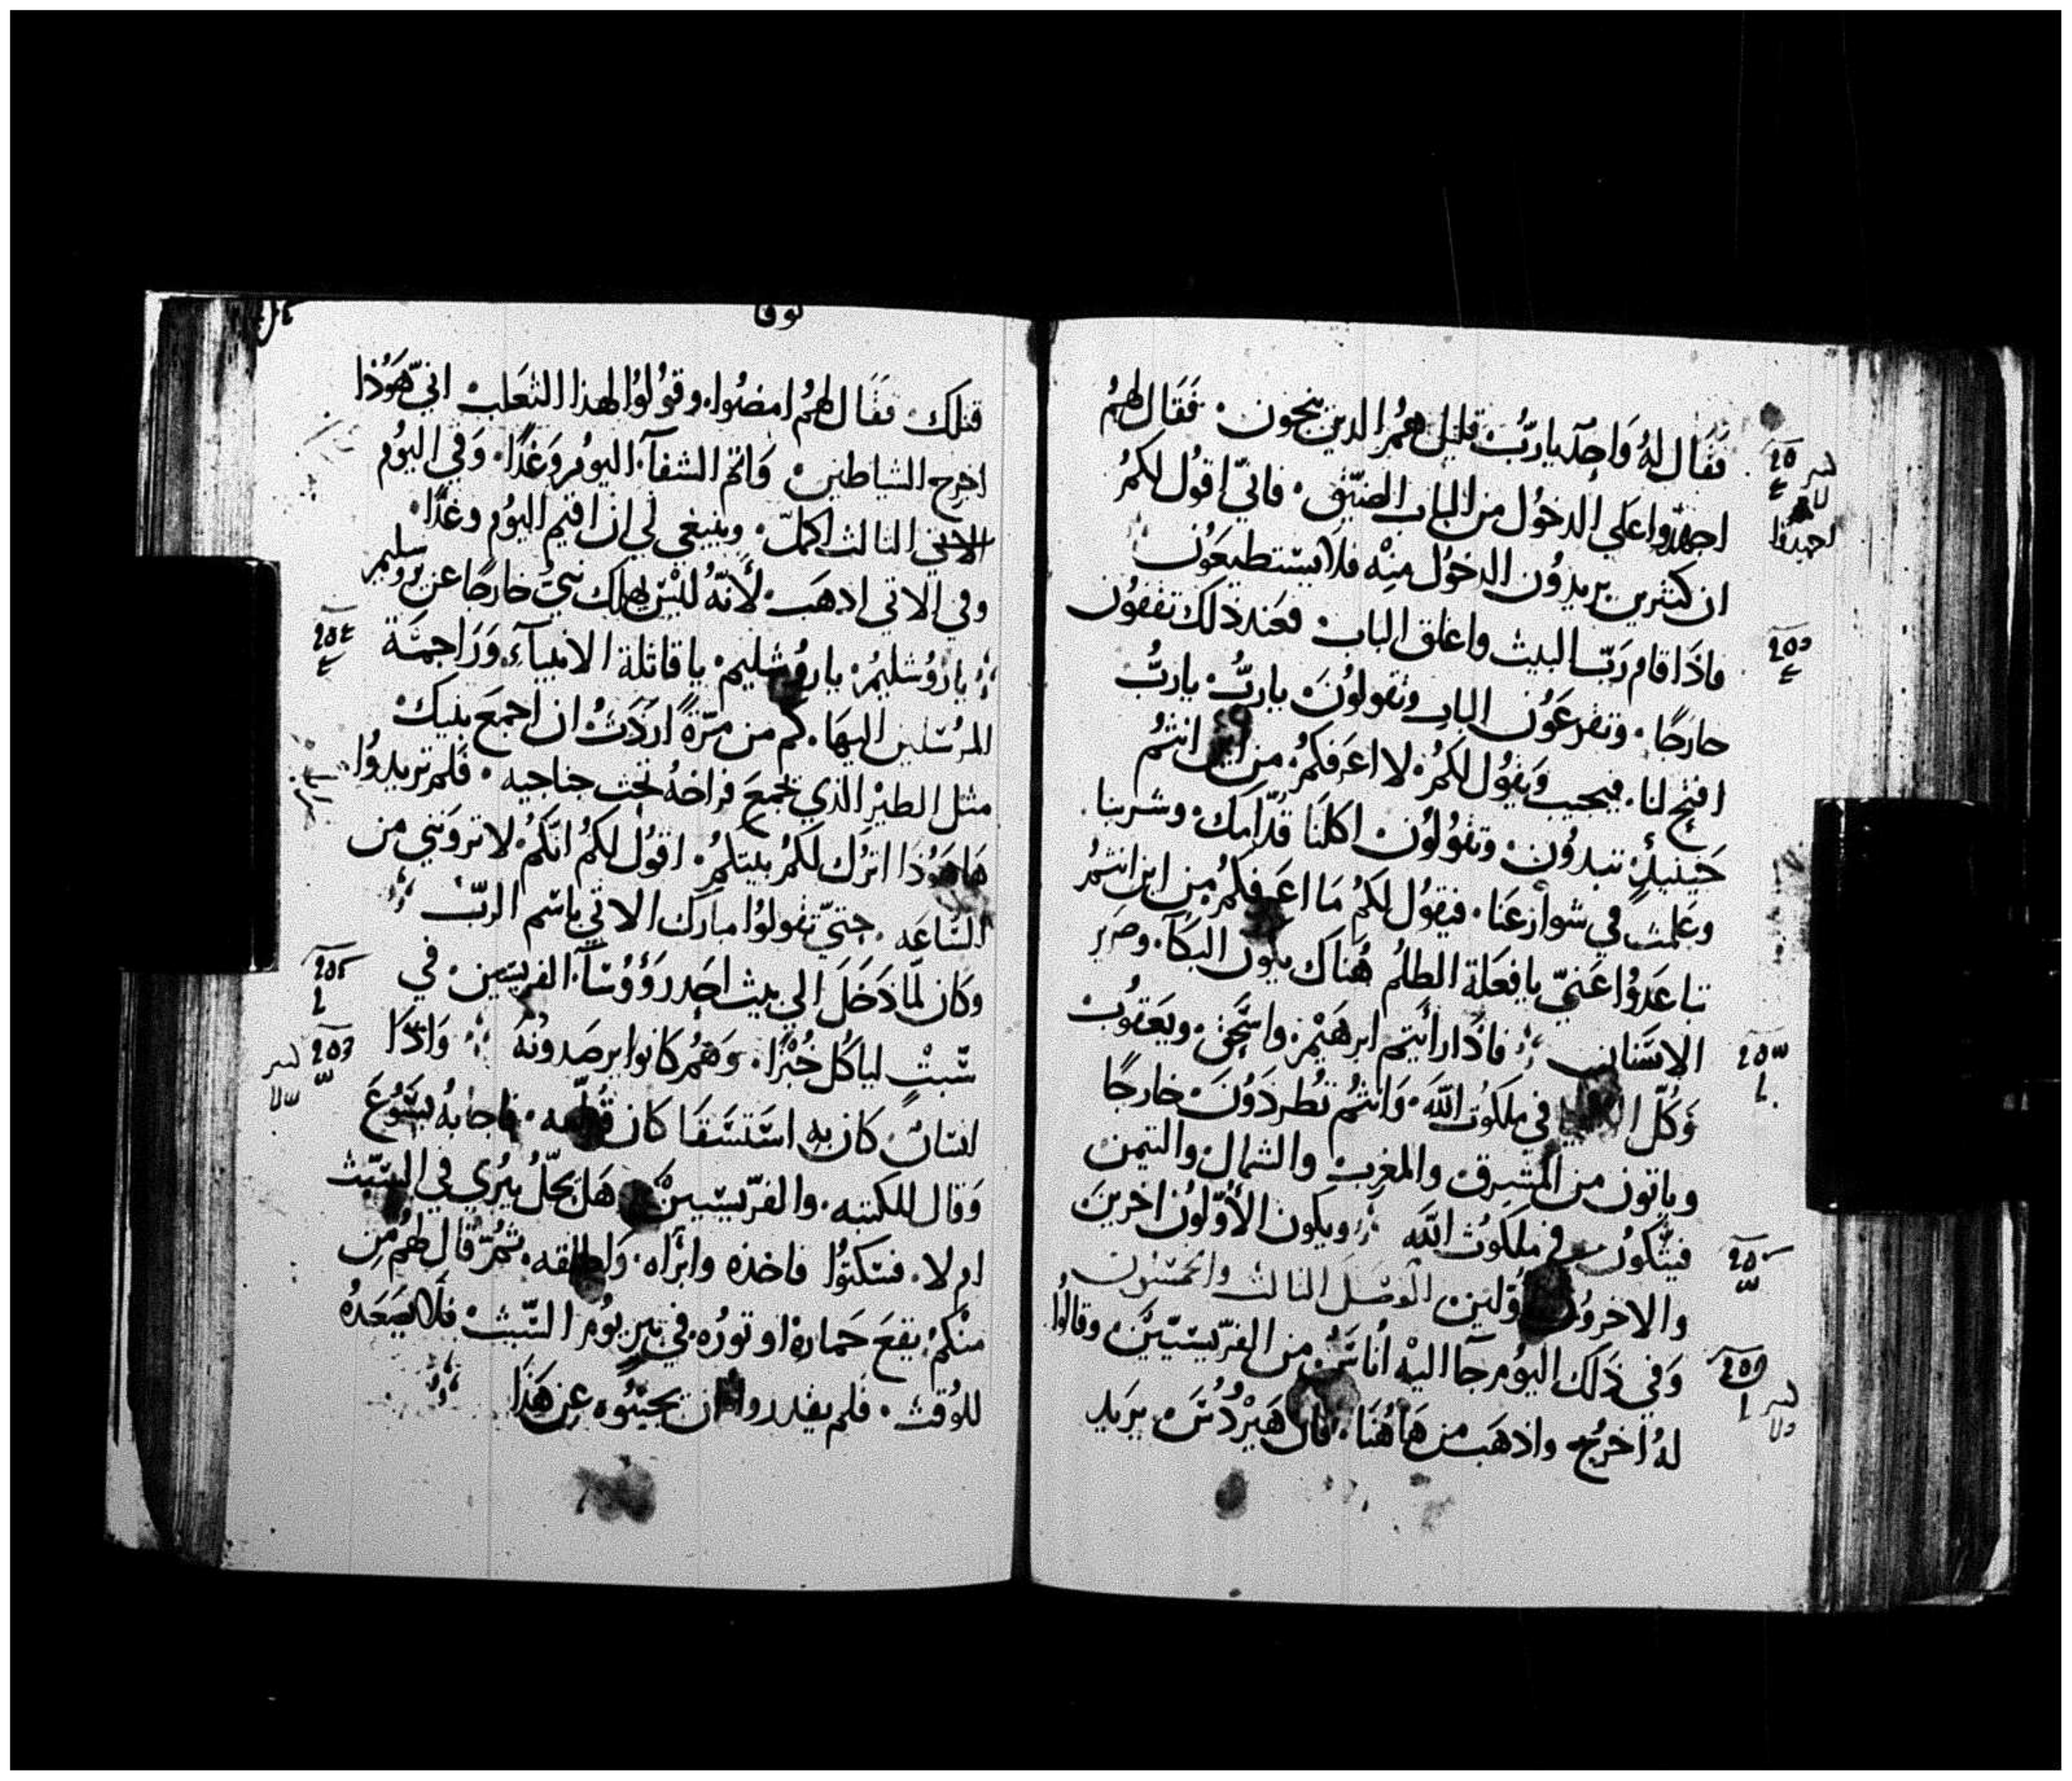 فَقَال لهُ وَاحِد يا ربُّ قليل همُ الدين ينجون. فَقَال لهمُ
اجهدوا على الدخُول من الباب الضيّق. فانّي اقول لكمُ
احيدوا
ان كتيرين يريدُون الدخُول مِنه فلا يستطيعَون
فاذَا قام ربّ البيت واغلق الباب فعَند ذلك تقفون
خارجًا. وتقرعَوُن الباب وتقولوُنَ ياربُّ ياربُّ
افتح لنا. فيجيب وَيقوُل لكمُ لا اعَرفكمُ من اين انتمُ
حَينيذٍ تبدوُن وتقوُلوُن اكلنَا قدّامك وشربنا.
وعَلمت في شوارعَنا. فيقوُل لكمُ مَا اعَرفكمُ من اين انتمُ
تباعَدوُا عَنّي يا فعَلة الظلمُ هُناك يكون البكآ. وصرير
الاسَنان فاذَا رأيتم ابرهَيمُ واسَحق ويعَقوُب
وَكلّ الانبيا في ملكوُت الله. وَانتمُ تُطردَوُنَ خارجًا
وياتون من المشرق والمغرب والشمال والتيمن
فيتّكوُن في ملكوُت الله ويكون الأَوّلوُن اخرين
والاخروُن اوّلين الفصَل التالت والخمسَون
وَفي ذلك اليوُم جآ اليهْ أناسَ من الفرّيسَيّين وقالوُا
لهُ اخرُج واذهَب من هَاهُنَا. فان هَيْرُدُسَ يريَد
لوقا
قتلك فقَال لهمُ امضُوا. وقوُلوُا لهذا الثعَلب انيّ هَوُذا
اخرج الشياطين وَاتم الشفآ. اليوُم وَغدًا. وَفي اليوُم
الاتي التالت اكملّ. وينبغي لي ان اقيم اليوُم وغدًا.
وفي الاتي اذهَب. لأنّهُ ليْس يهلك نبيّ خارجًا عن يروسليم
يا رُوُشليمُ. ياروُشليم. يا قاتلة الانبيآءِ. وَرَاجمَة
المرُسَلين اليهَا. كم من مَرّةً ارَدَتُ ان اجمَع بنيك
متل الطيرْ الذي يجمعَ فراخهُ تحت جناحيه. فَلم تريدوُا
هَاهَوُذَا اترُك لكمُ بيتكمُ. اقوُل لكمُ انكمُ لا تروَنني من
السَاعَه. حتيّ تقولوُا مبارك الاتي باسَم الربّ
وَكان لمّا دَخَلَ الي بيت احَد رَؤوُسَآ. الفريسَين. في
سَّبتٍ لياكُل خُبْزًا. وَهمُ كانوا يرصَدونُهَ وَاذَا
انسَان كان بهِ استَسَقَا كان قدّامه. فاجَابهُ يسَوُعَ
وَقال للكتبه. والفرّيسَيينْ هَل يحلُّ يبُري في السَبت
ام لا. فسَكتوُا فاخذه وابرَاه. وَاطلقه. تمُرّ قال لهُم مِن
منْكمُ يقعَ حَمارهُ او تورُه. في بيرٍ يوُم السَّبت فلاَ يصَعَدهُ
للوُقت. فلم يقدروا ان يجيبُوُه عِن هَذَا